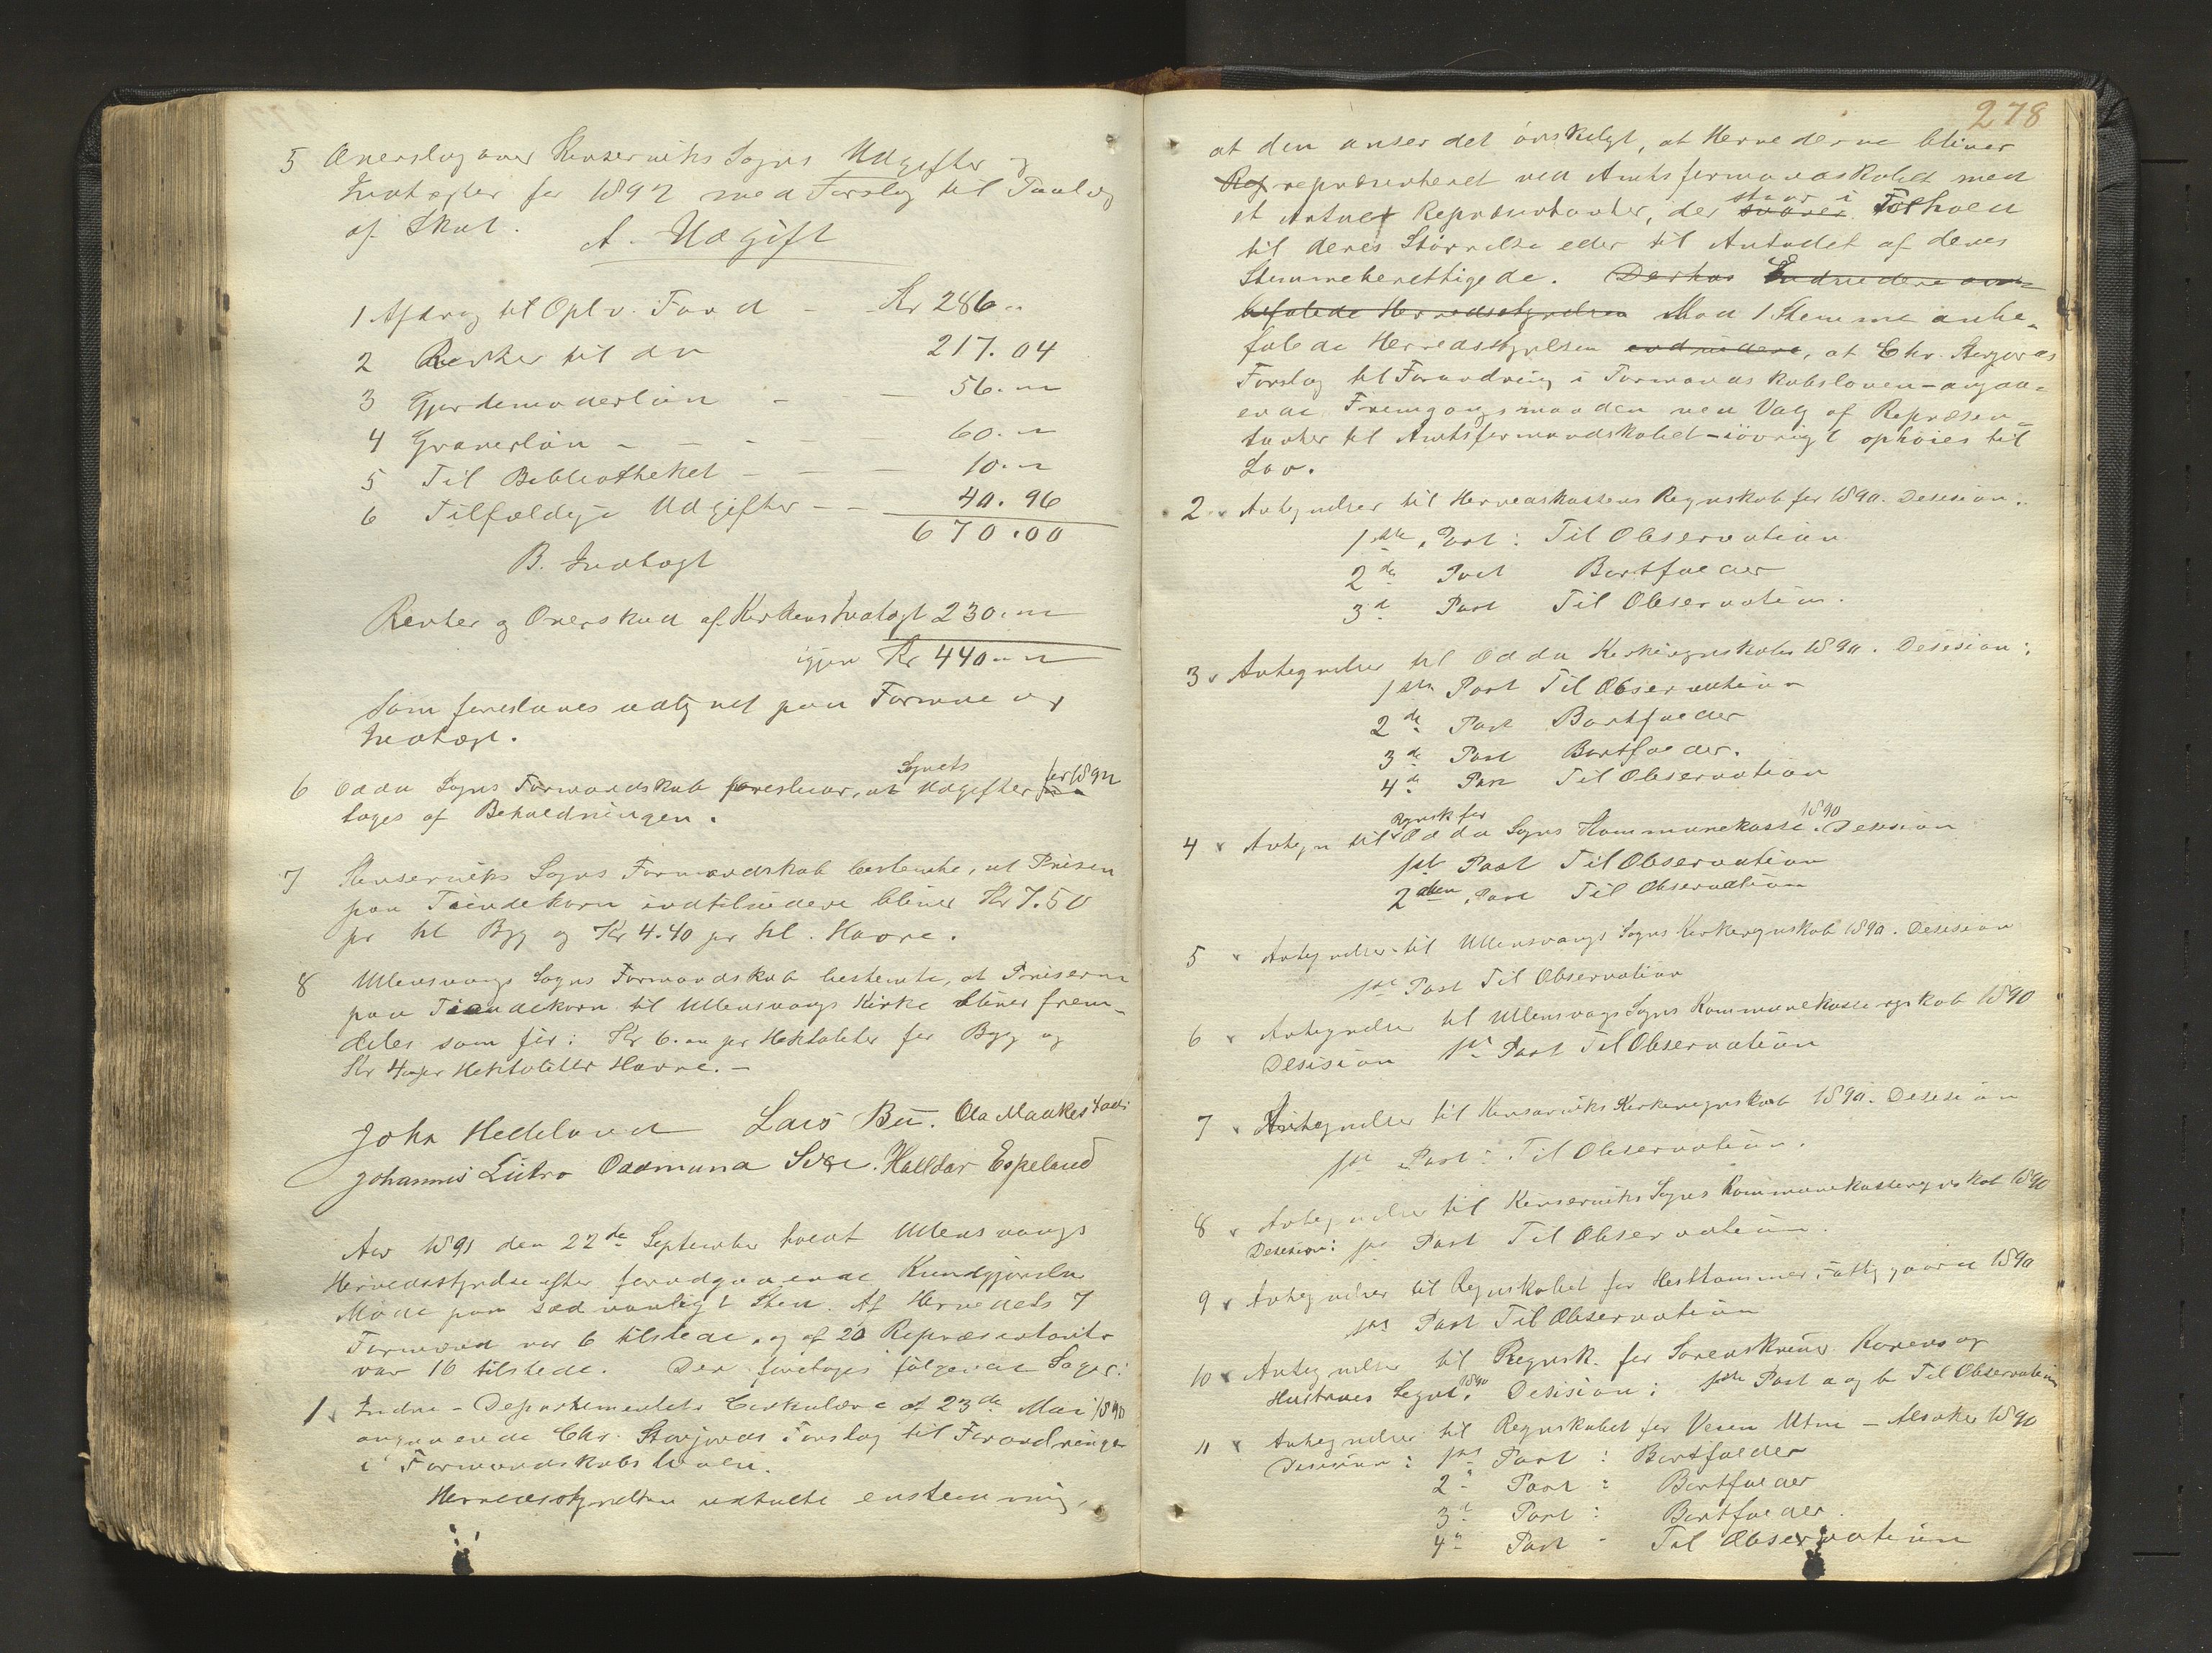 5 Overslag over Kinserviks Sogns Udgifter og
Indtægter for 1892 med Forslag til Paalæg
af Skat.
A. Udgift
1 Afdrag til Opl.v. Fond - Kr 286 "
2 Renter til do 217.04
3 Gjordemoderløn - - 56. "
4 Graverløn - - - 60. "
5 Til Bibliotheket - - - 10. "
6 Tilfældige Udgifter - - 40.96
670.00
B. Indtægt
Renter og Overskud af Kirkens Indtægt 230. "
igjen Kr 440 "
Som foreslaaes udlignet paa Formue og
Indtægt.
6 Odda Sogns Formandskab foreslaar, at Sognets Udgifter for 1892
tages af Beholdningen.
7 Kinserviks Sogns Formandskab bestemte, at Prisen
paa Tiendekorn indtilvidere bliver Kr 7.50
pr hl Byg og Kr 4.40 pr hl. Havre.
8 Ullensvangs Sogns Formandskab bestemte, at Priserne
paa Tiendekorn til Ullensvangs Kirke bliver frem-
deles som før: Kr 6. pr Hektoliter for Byg og
Kr 4 pr Hektoliter Havre. -
John Hedeland Lars Bu. Ola Maakestad
Johannis Lutro Oddmund Sexe. Halldor Espeland
Aar 1891 den 22de September holdt Ullensvangs
Herredsstyrelse efter forudgaaende Kundgjørelse
Møde paa sædvanligt Sted. Af Herredets 7
Formænd var 6 tilstede, og af 20 Repræsentanter
var 16 tilstede. Der foretoges følgende Sager:
1. Indre-Departementets Cirkulære af 23de Mai 1890
angaaende Chr. Storjords Forslag til Forandringer
i Formandskabsloven.
Herredsstyrelsen udtalte enstemmig,
278
at den anser det ønskeligt, at Herrederne bliver
Rep repræsenteret ved Amtsformandskabet med
et Antal Repræsentanter, der svarer staar i Forhold
til deres Størrelse eller til Antallet af deres
Stemmeberettigede. Derhos Endvidere an-
befalede Herredsstyrelsen Mod 1 Stemme anbe-
falede Herredsstyrelsen endvidere, at Chr. Storjords
Forslag til Forandring i Formandskabsloven - angaa-
ende Fremgangsmaaden ved Valg af Repræsen-
tanter til Amtsformandskabet - iøvrigt ophøies til
Lov.
2 Antegnelser til Herredskassens Regnskab for 1890. Desision.
1ste Post: Til Observation
2de Post Bortfalder
3de Post Til Observation.
3 Antegnelser til Odda Kirkeregnskab 1890. Desision:
1ste Post Til Observation
2de Post Bortfalder
3de Post Bortfalder.
4de Post Til Observation
4 Antegn til Regnsk for Odda Sogns Kommunekasse 1890. Desision
1ste Post Til Observation
2den Post Til Observation
5 Antegnelser til Ullensvangs Sogns Kirkeregnskab 1890. Desision
1ste Post Til Observation
6 Antegnelser til Ullensvangs Sogns Kommunekasseregnskab 1890
Desision 1ste Post Til Observation
7 Antegnelser til Kinserviks Kirkeregnskab 1890. Desision
1ste Post: Til Observation.
8 Antegnelser til Kinserviks Sogns Kommunekasseregnskab 1890
Desision: 1ste Post Til Observation.
9 Antegnelser til Regnskabet for Hesthammer, 1890
1ste Post Til Observation
10 Antegnelser til Regnsk. for Sorenskriver Korens og
Hustrues Legat 1890. Desision: 1ste Post a og b Til Observation
11 Antegnelser til Regnskabet for Veien Utne - Alsaker 1890
Desision: 1ste Post: Bortfalder
2" Post: Bortfalder
3d Post: Bortfalder.
4" Post " Til Observation